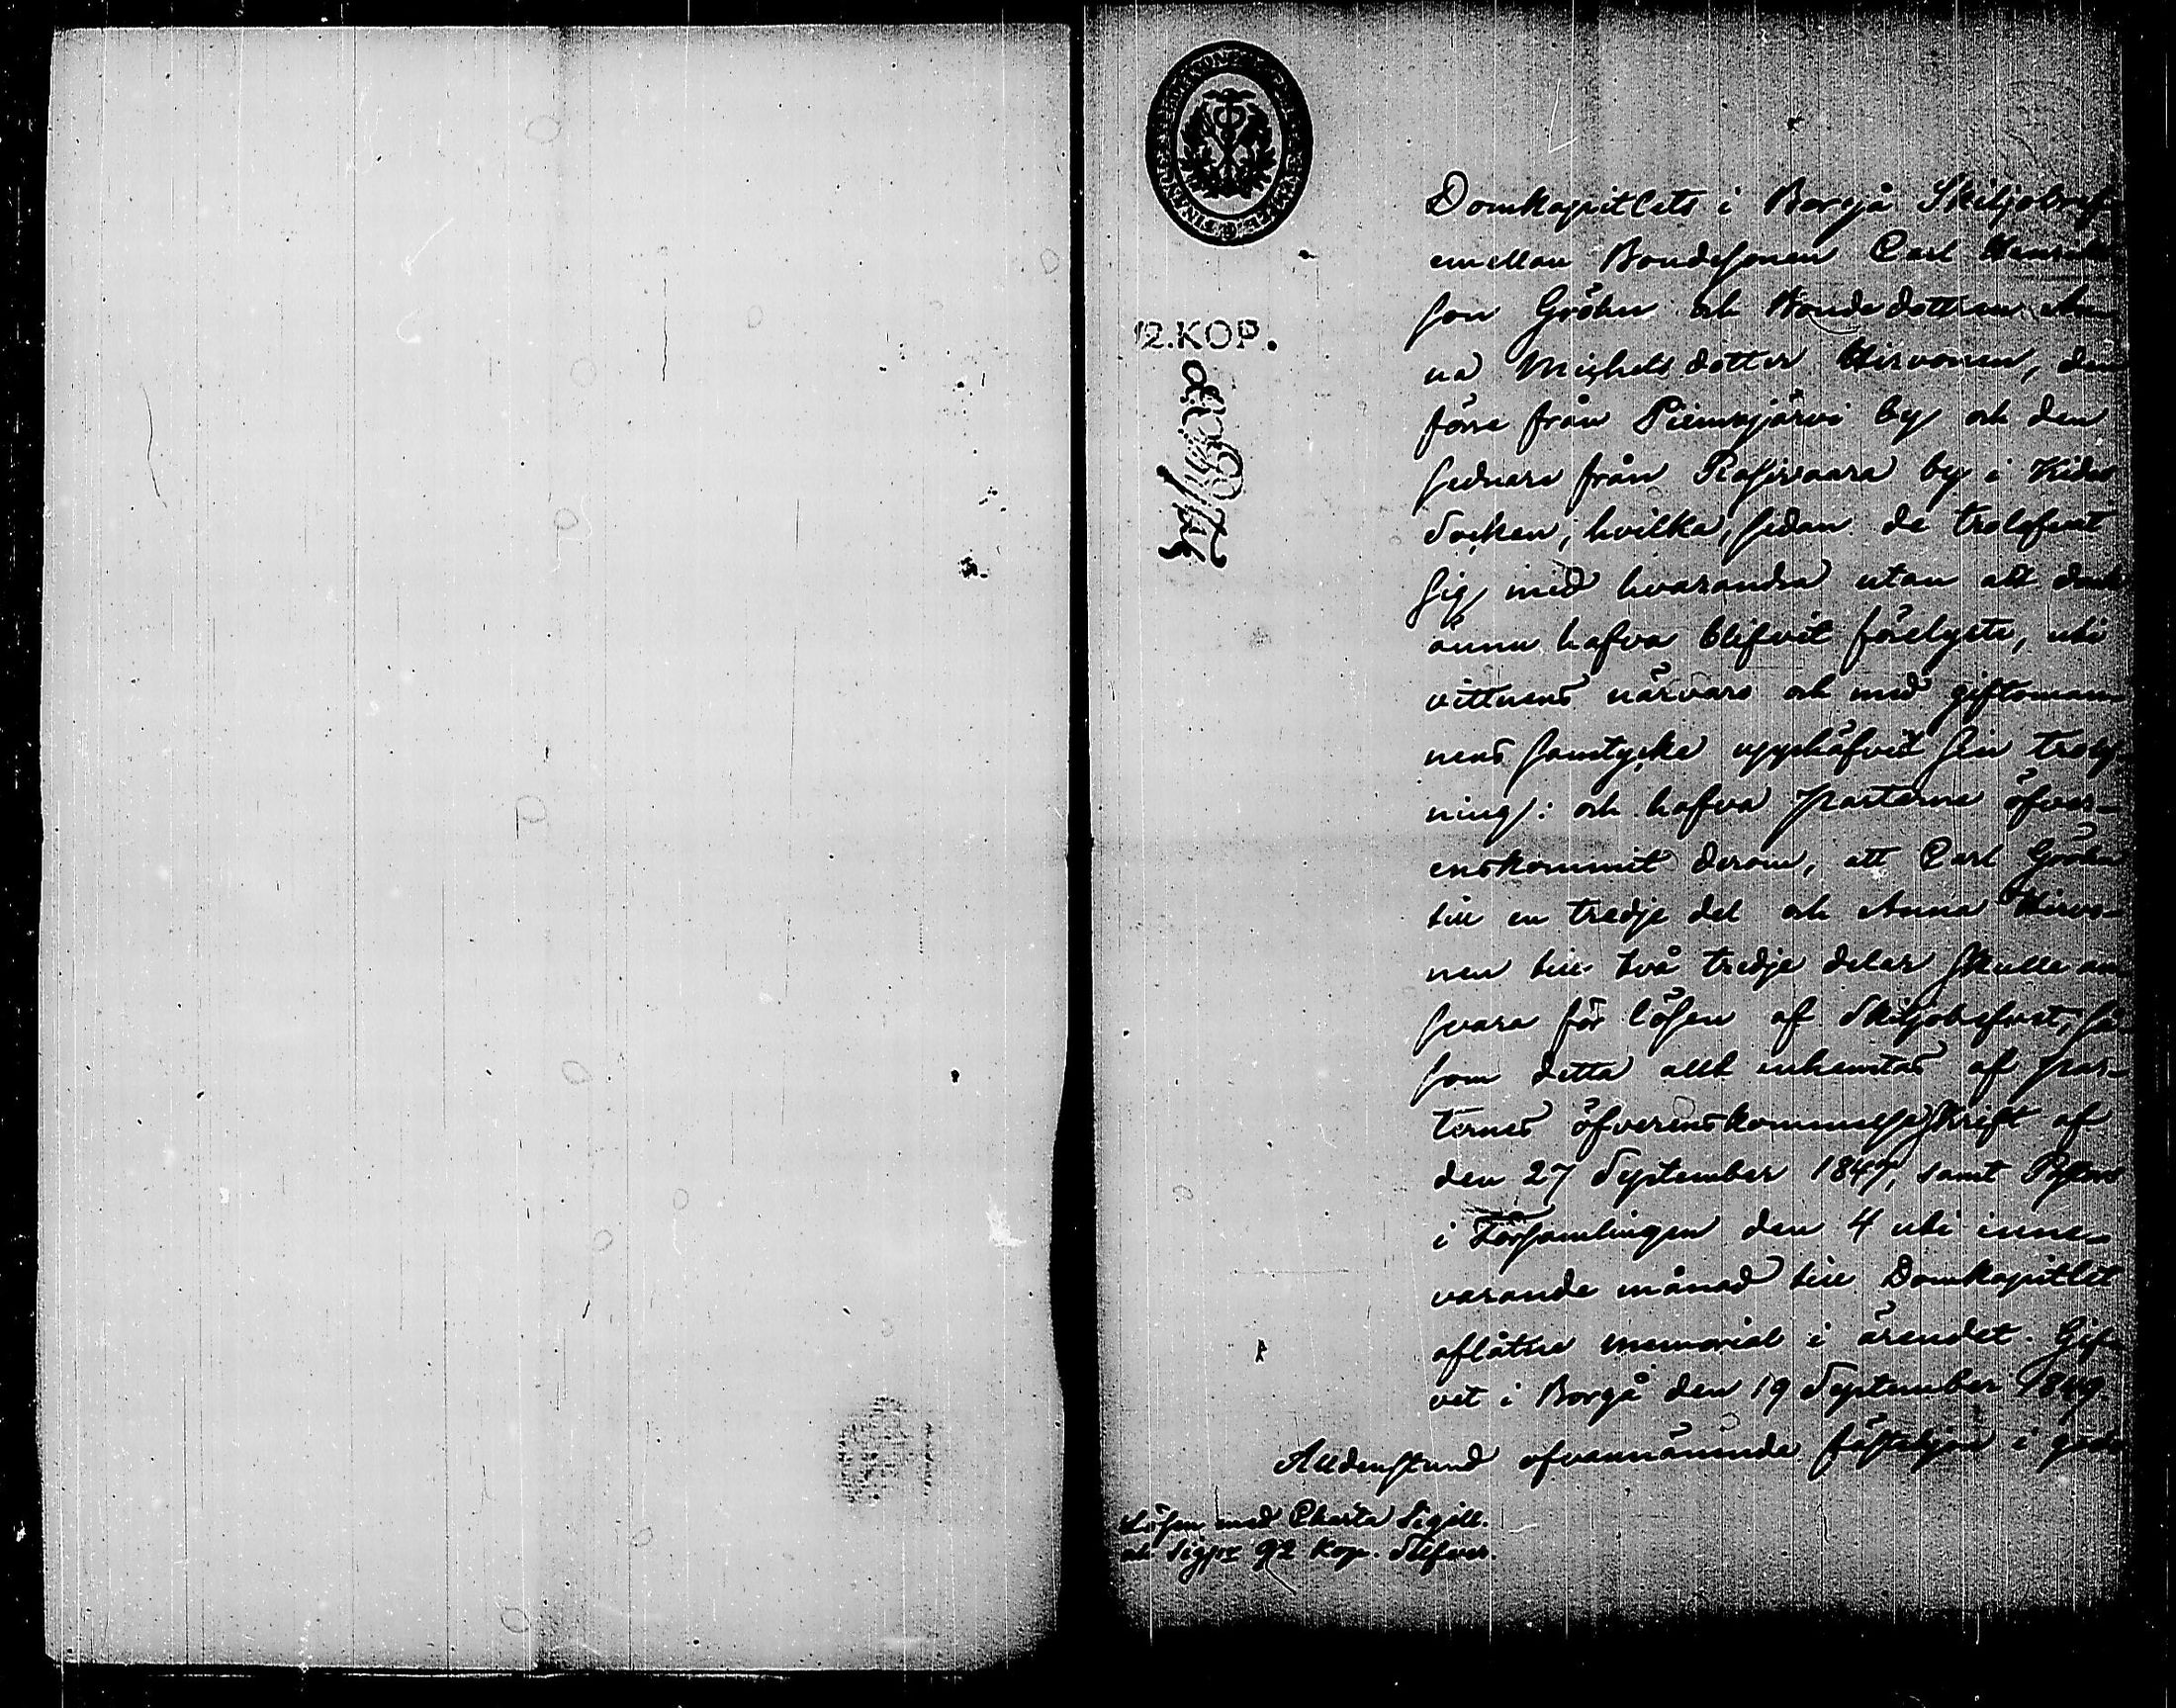 Domkapitlets i Borgå Skiljobref
emellan Bondesonen Carl Henriks
son Gröhn och Bondedottren An
na Michelsdotter Hirvonen, den
förre från Piimäjärvi by och den
sednare från Rasivaara by i Kides
Socken, hvilka, sedan de trolofvat
sig med hvarandra utan att dock
ännu hafva blifvit förelyste, uti
vittnens närvaro och med giftoman
nens samtycke upphäfvit sin trolof
ning: och hafva parterne öfver-
enskommit derom, att Carl Gröhn
till en tredje del och Anna Hirvo-
nen till två tredje delar skulle an
svara för lösen af Skiljobrefvet, så
som detta allt inhemtas af par-
ternes öfverenskommelseskrift af
den 27 September 1847, samt Pastors
i Församlingen den 4 uti inne-
varande månad till Domkapitlet
aflåtne memorial i ärendet. Gif-
vet i Borgå den 19 September 1849.
Alldenstund ofvannämnde fästehjon i
Lösen med Charta Sigill.
och Sigpr 92 kop. Silfver.
12.KOP.